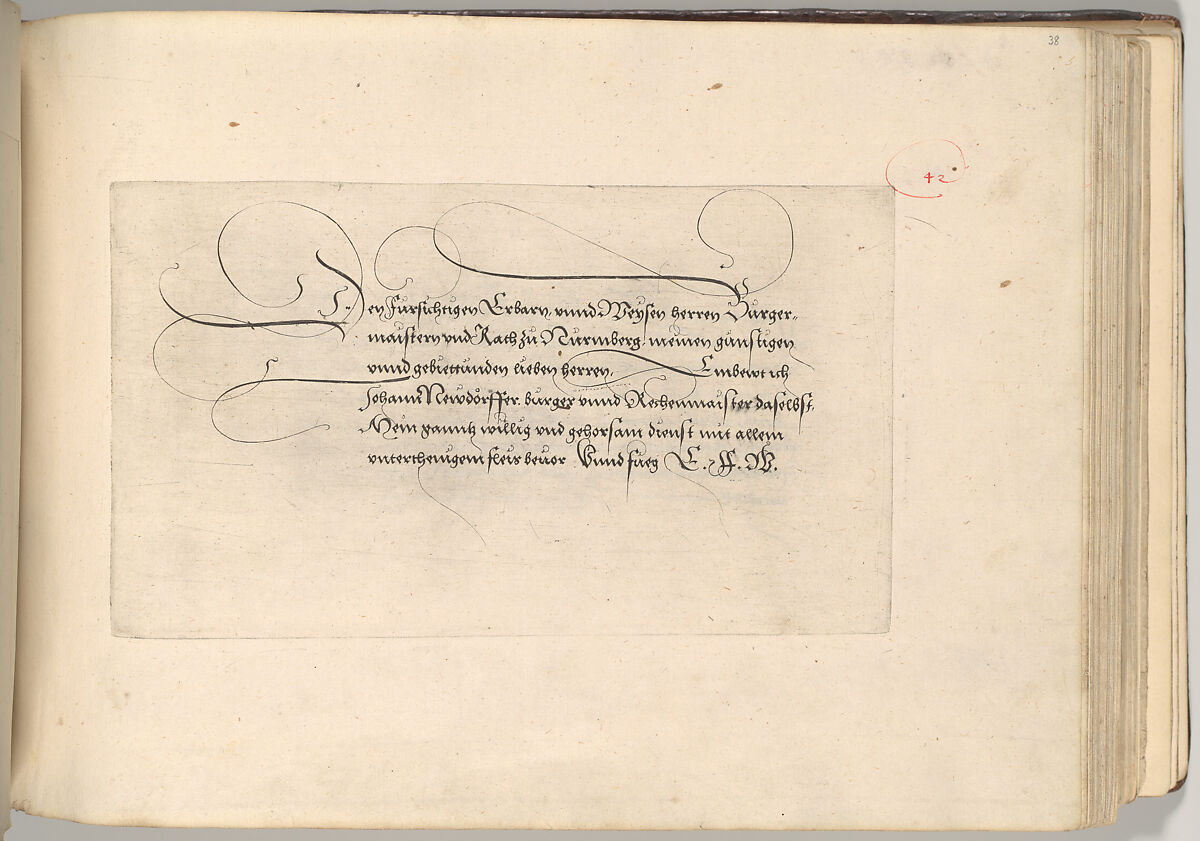 38
42
Den Fursichtigen Erbarn, vnnd Weysen herren Burger-
maistern vnd Rath zu Nurmberg, meinen gunstigen
vnnd gebiettunden lieben herren, Embewt ich
Johann Newdörffer, burger vnnd Rechenmaister daselbst,
Mein ganntz willig vnd gehorsam dienst mit allem
vnterthenigem fleis beuor Vnnd fueg E. F. W.